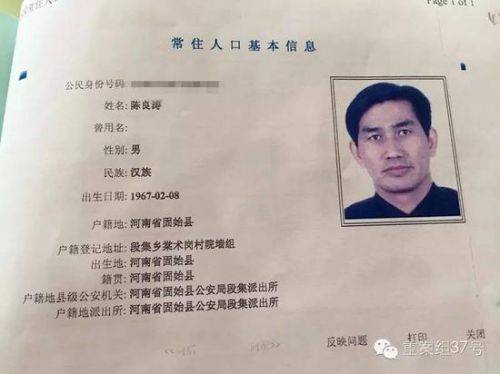 Page 1 of 1
常住人口基本信息
公民身份号码:
姓名: 陈良涛
曾用名:
性别: 男
民族: 汉族
出生日期: 1967-02-08
户籍地: 河南省固始县
户籍登记地址: 段集乡棠术岗村院墙组
出生地: 河南省固始县
籍贯: 河南省固始县
户籍地县级公安机关: 河南省固始县公安局段集派出所
户籍地派出所: 河南省固始县公安局段集派出所
反映问题 打印 关闭
重案组37号